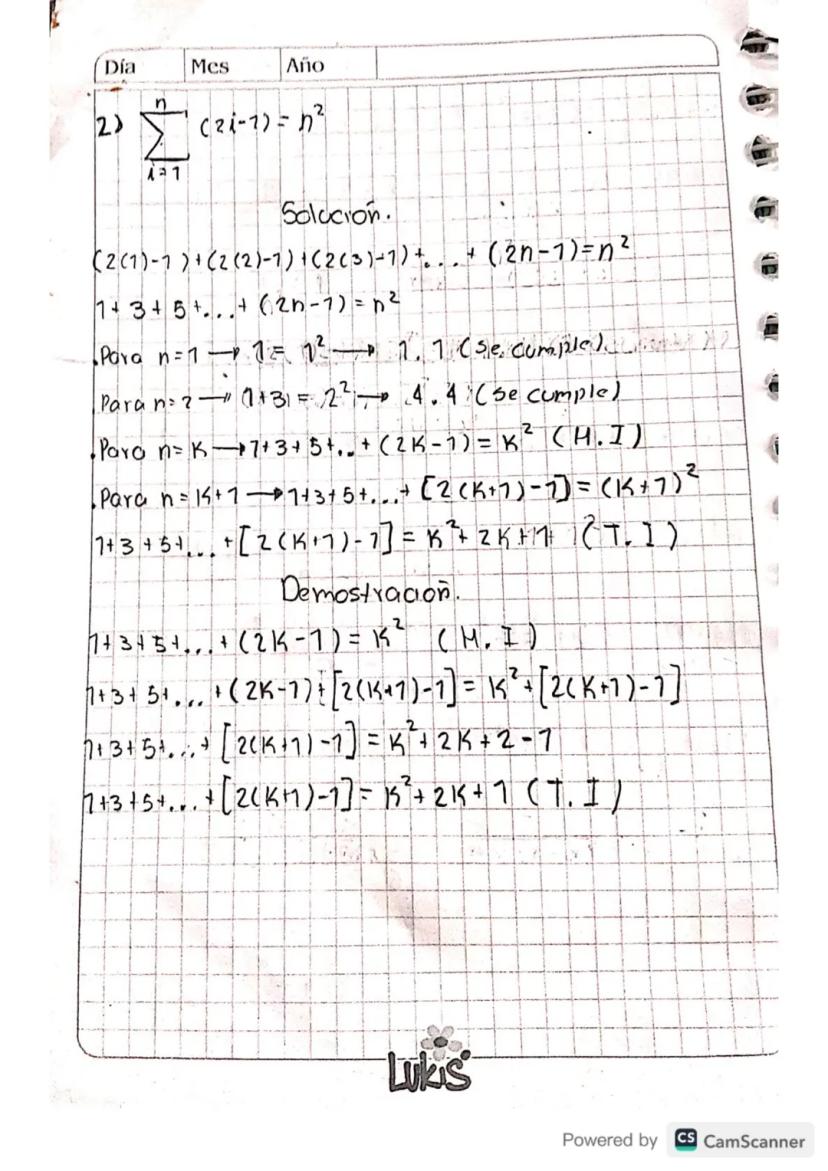 Día Mes Año
2) n∑i=1 (2i-1) = n²
Solución.
(2(1)-1)+(2(2)-1)+(2(3)-1)+...+(2n-1)=n²
1+3+5+...+(2n-1)=n²
.Para n=1 → 1= 1² → 1.1 (se cumple)
Para n=2 → (1+3)= 2² → 4.4 (se cumple)
.Para n=K → 1+3+5+...+(2K-1)=K² (H.I)
.Para n=K+1 → 1+3+5+...+[2(K+1)-1]=(K+1)²
1+3+5+...+[2(K+1)-1]=K²+2K+1 (T.I)
Demostración.
1+3+5+...+(2K-1)=K² (H.I)
1+3+5+...+(2K-1)+[2(K+1)-1]=K²+[2(K+1)-1]
1+3+5+...+[2(K+1)-1]=K²+2K+2-1
1+3+5+...+[2(K+1)-1]=K²+2K+1 (T.I)
Lukis
Powered by CS CamScanner